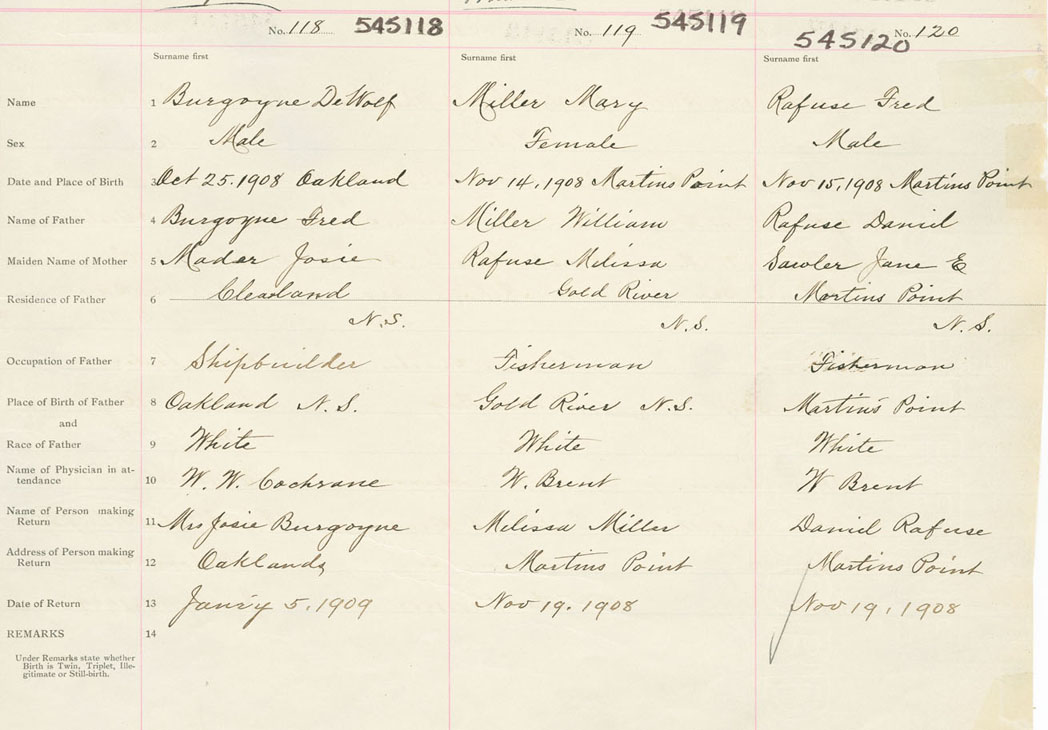 No. 118 545118 No. 119 545119 545120 No. 120
Surname first Surname first Surname first
Name 1 Burgoyne DeWolf Miller Mary Rafuse Fred
Sex 2 Male Female Male
Date and Place of Birth 3 Oct 25. 1908 Oakland Nov 14, 1908 Martins Point Nov 15, 1908 Martins Point
Name of Father 4 Burgoyne Fred Miller William Rafuse Daniel
Maiden Name of Mother 5 Mader Josie Rafuse Melissa Sawler Jane E
Residence of Father 6 Gold River Martins Point
N.S. N.S. N.S.
Occupation of Father 7 Shipbuilder Fisherman Fisherman
Place of Birth of Father 8 Oakland N.S. Gold River N.S. Martins Point
and
Race of Father 9 White White White
Name of Physician in at-
tendance 10 W. W. Cochrane W. Brent W Brent
Name of Person making
Return 11 Mrs Josie Burgoyne Melissa Miller Daniel Rafuse
Address of Person making
Return 12 Oaklands Martins Point Martins Point
Date of Return 13 Jan'y 5, 1909 Nov 19. 1908 Nov 19, 1908
REMARKS 14
Under Remarks state whether
Birth is Twin, Triplet, Ille-
gitimate or Still-birth.